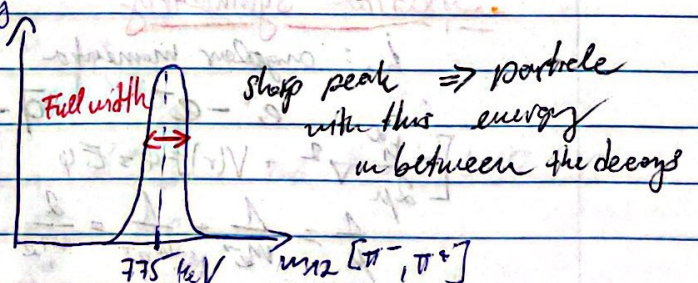 Full width
sharp peak => particle
with this energy
in between the decays
775 MeV
m12 [π⁻, π⁺]